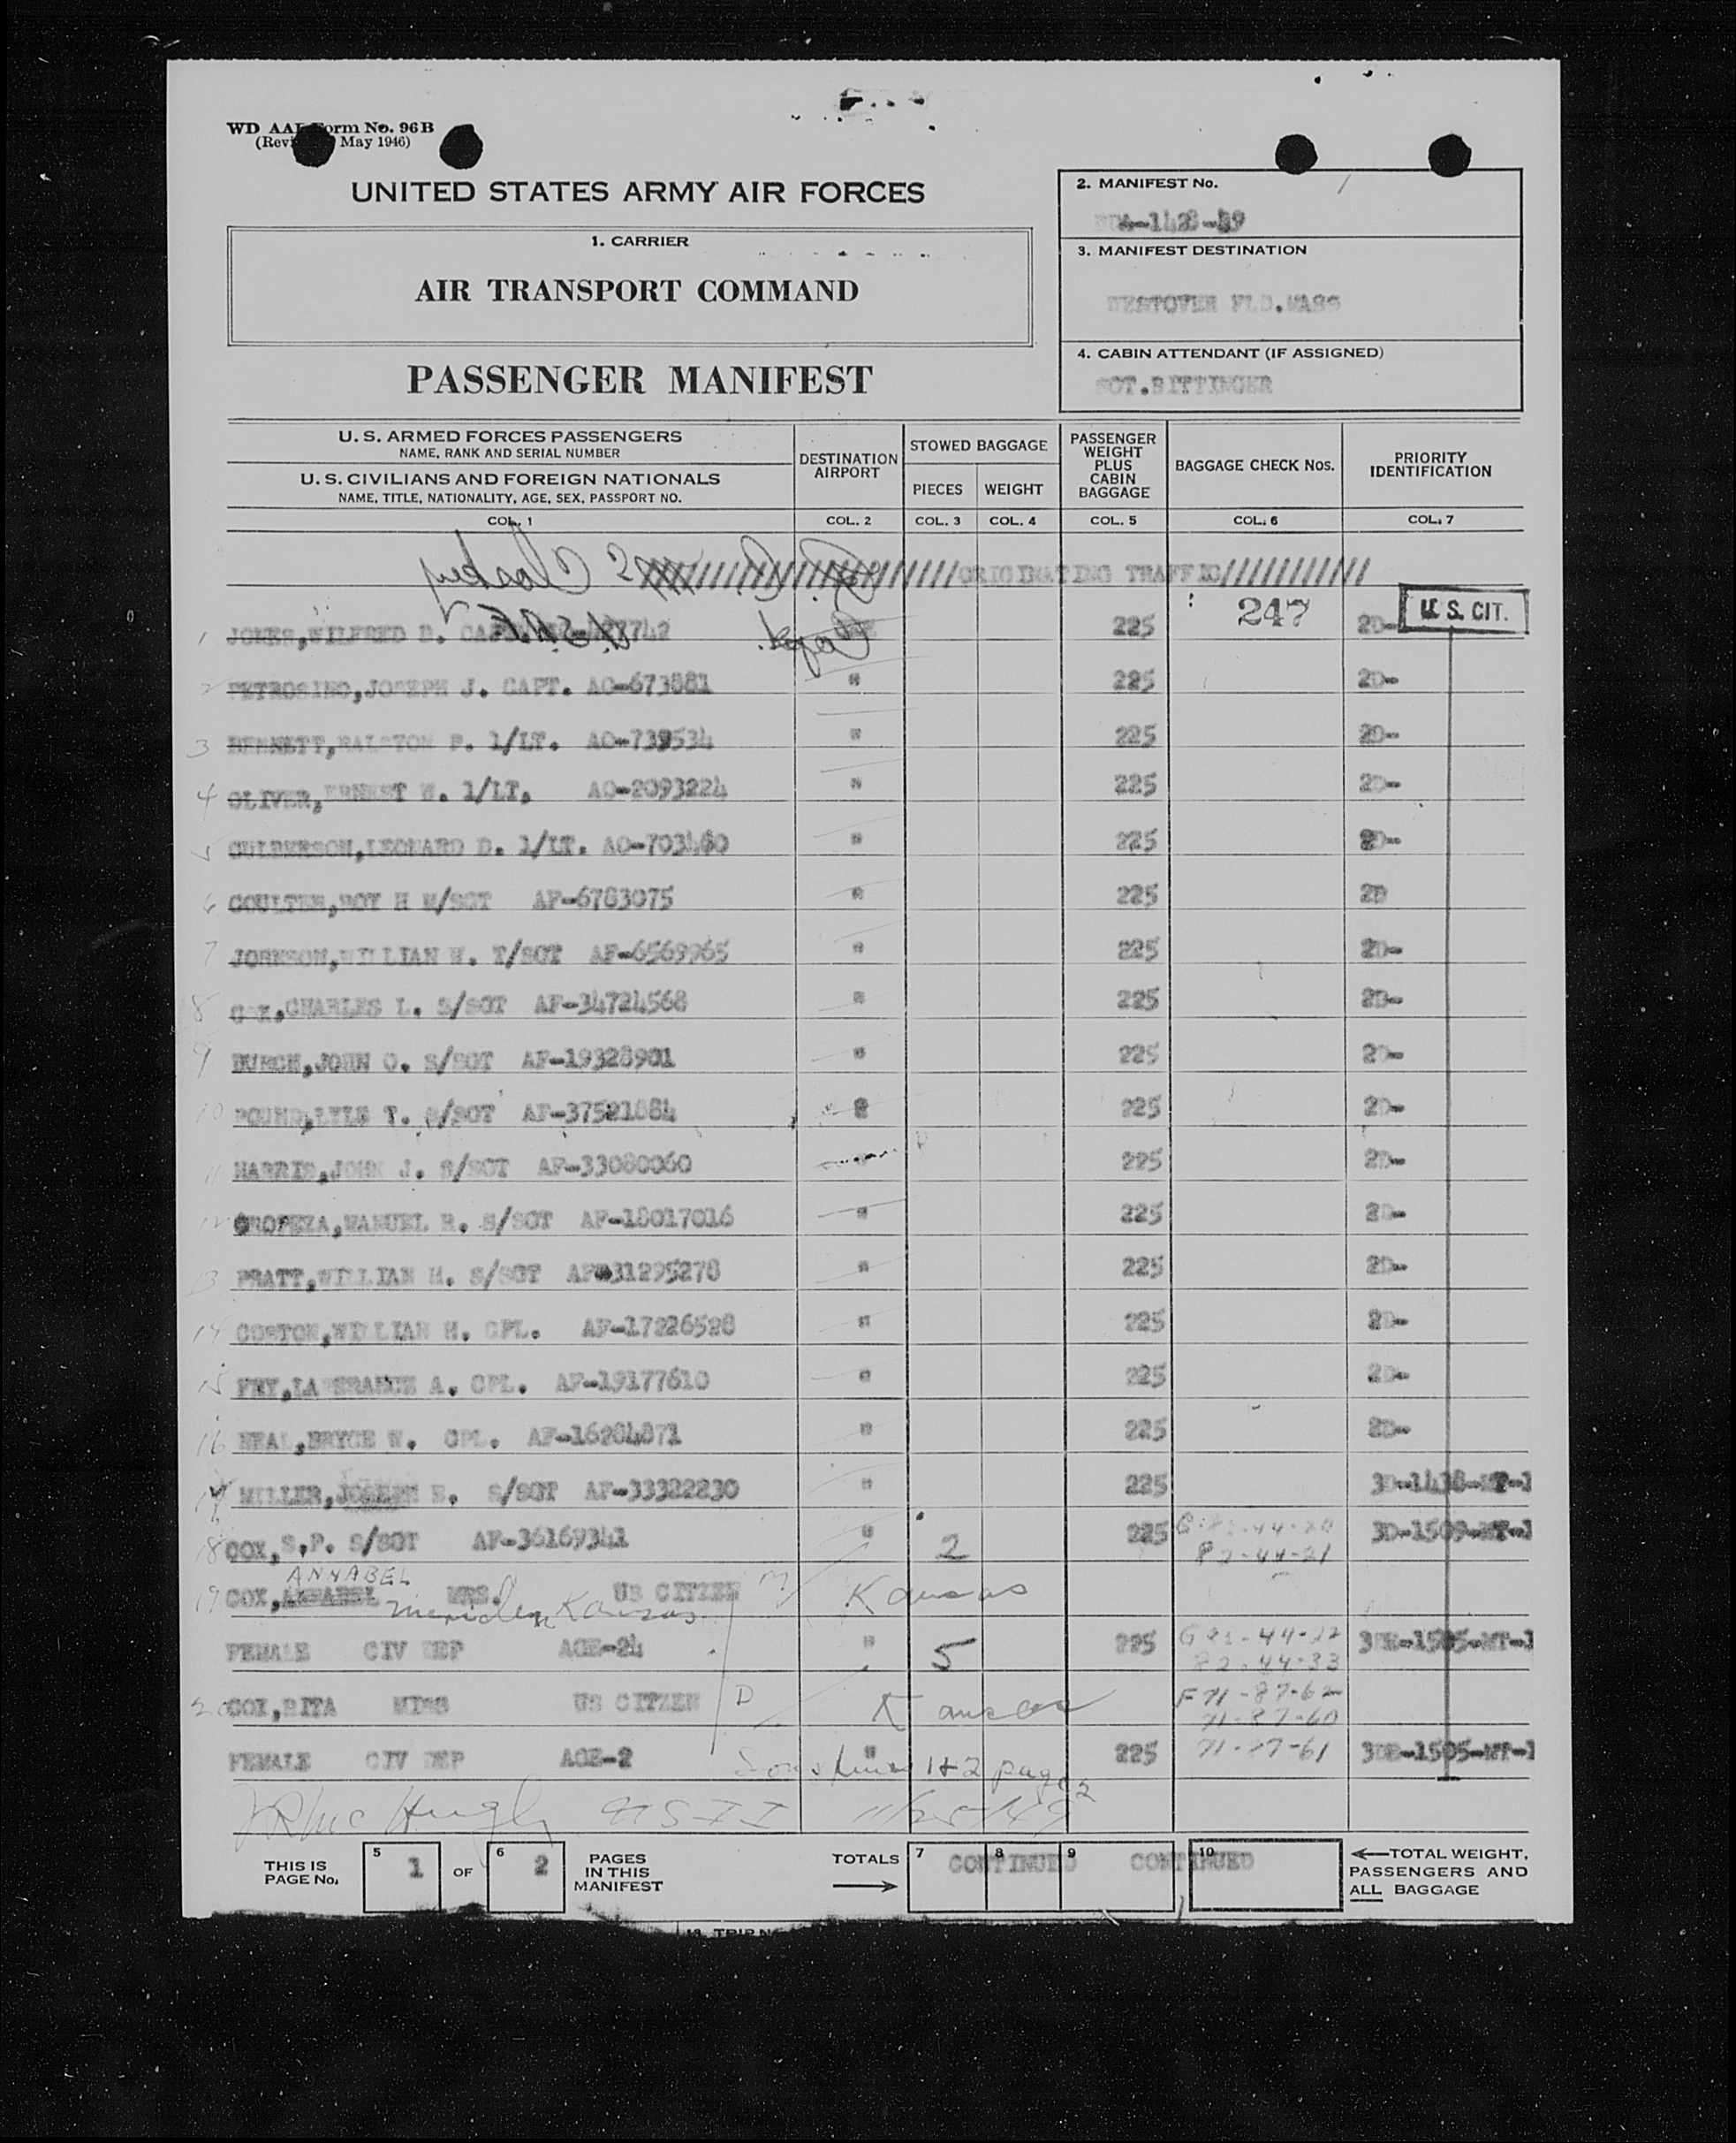 WD AAF Form No. 96B
(Revised May 1946)
UNITED STATES ARMY AIR FORCES
1. CARRIER
AIR TRANSPORT COMMAND
PASSENGER MANIFEST
2. MANIFEST No.
-1428-49
3. MANIFEST DESTINATION
WESTOVER FLD.MASS
4. CABIN ATTENDANT (IF ASSIGNED)
SGT.BITTINGER
U. S. ARMED FORCES PASSENGERS
NAME, RANK AND SERIAL NUMBER
U. S. CIVILIANS AND FOREIGN NATIONALS
NAME, TITLE, NATIONALITY, AGE, SEX, PASSPORT NO.
DESTINATION AIRPORT
STOWED BAGGAGE
PIECES WEIGHT
PASSENGER WEIGHT PLUS CABIN BAGGAGE
BAGGAGE CHECK Nos.
PRIORITY IDENTIFICATION
COL. 1 COL. 2 COL. 3 COL. 4 COL. 5 COL. 6 COL. 7
ORIGINATING TRAFFIC///////////
247 U. S. CIT.
1 JONES,WILFRED D. 225 2D-
2 PETROSINO,JOSEPH J. CAPT. AO-673881 " 225 2D-
3 BENNETT,RALSTON F. 1/LT. AO-739534 " 225 2D-
4 OLIVER,ERNEST W. 1/LT. AO-2093224 " 225 2D-
5 CULBERSON,LEONARD D. 1/LT. AO-703460 " 225 2D-
6 COULTER,ROY H M/SGT AF-6783075 " 225 2D
7 JOHNSON,WILLIAN W. T/SGT AF-6569965 " 225 2D-
8 COX,CHARLES L. S/SGT AF-34724568 " 225 2D-
9 BURCH,JOHN O. S/SGT AF-19328901 " 225 2D-
10 LYLE T. S/SGT AF-37521884 " 225 2D-
11 HARRIS,JOHN J. S/SGT AF-33080060 225 2D-
12 OROPEZA,MANUEL R. S/SGT AF-18017016 " 225 2D-
13 PRATT,WILLIAN H. S/SGT AF-31295278 " 225 2D-
14 COSTON,WILLIAN H. CPL. AF-17226528 " 225 2D-
15 FRY, A. CPL. AF-19177610 " 225 2D-
16 NEAL,BRYCE W. CPL. AF-16284871 " 225 2D-
17 MILLER,JOSEPH E. S/SGT AF-33322230 " 225 3D-1438-MT-1
18 COX,S.P. S/SGT AF-36169341 " 2 225 3D-1509-MT-1
82-44-21
ANNABEL
19 COX,ANNABEL MRS. US CITZEN M Kansas
Meriden Kansas
FEMALE CIV DEP AGE-24 " 5 225 3DE-1505-MT-1
82-44-33
20 COX,RITA MISS US CITZEN D Kansas F 71-87-62
71-87-60
FEMALE CIV DEP AGE-2 " 225 71-87-61 3DE-1505-MT-1
1+2 page 2
McHugh 11/25/49
THIS IS PAGE No. 5 1 OF 6 2 PAGES IN THIS MANIFEST
TOTALS 7 8 CONTINUED 9 CONTINUED 10
TOTAL WEIGHT, PASSENGERS AND ALL BAGGAGE